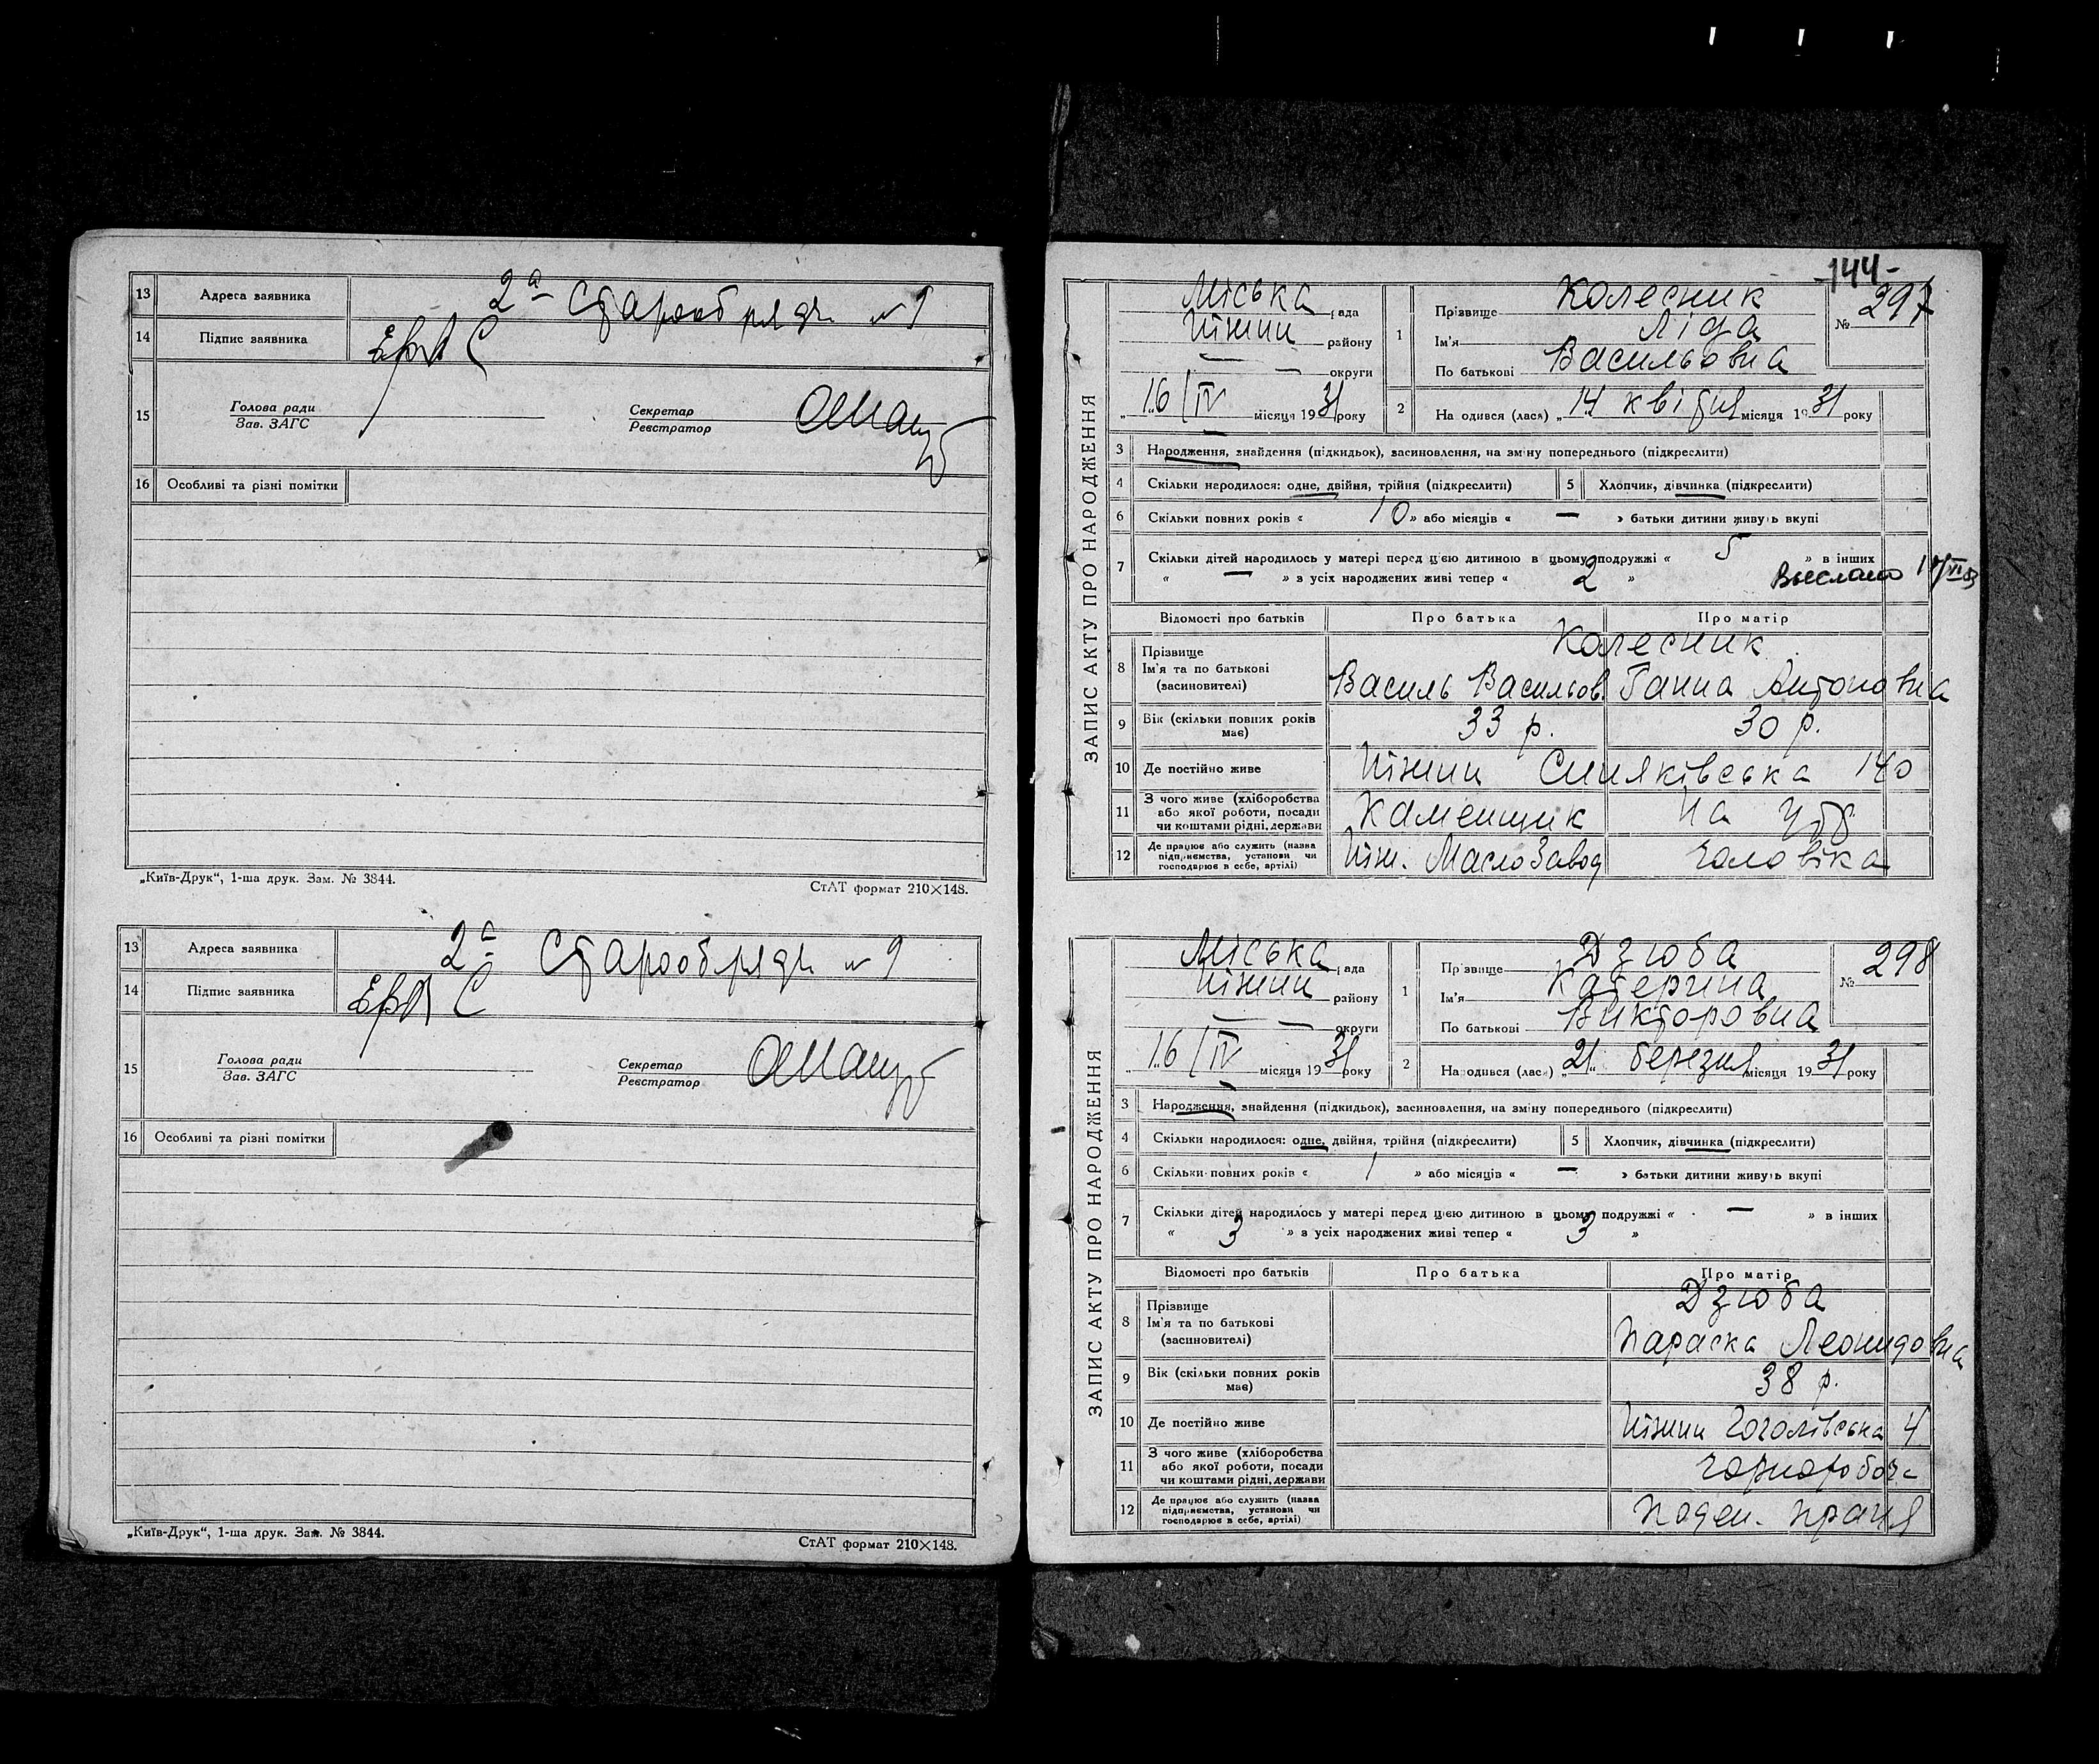 13 Адреса заявника 2а Старообрядч. № 9
14 Підпис заявника
15 Голова ради
Зав. ЗАГС
Секретар
Реєстратор
16 Особливі та різні помітки
„Київ-Друк“, 1-ша друк. Зам. № 3844.
СтАТ формат 210×148.
13 Адреса заявника 2а Старообрядч. № 9
14 Підпис заявника
15 Голова ради
Зав. ЗАГС
Секретар
Реєстратор
16 Особливі та різні помітки
„Київ-Друк“, 1-ша друк. Зам. № 3844.
СтАТ формат 210×148.
-144-
ЗАПИС АКТУ ПРО НАРОДЖЕННЯ
Міська рада
Ніжин району
— — округи
„16/IV місяця 1931 року
1 Прізвище Колесник
Ім'я Ліда
По батькові Васильовна
№ 297
2 Народився (лася) „14“ квітня місяця 1931 року
3 Народження, знайдення (підкидьок), засиновлення, на зміну попереднього (підкреслити)
4 Скільки народилося: одне, двійня, трійня (підкреслити)
5 Хлопчик, дівчинка (підкреслити)
6 Скільки повних років « 10 » або місяців « — » батьки дитини живуть вкупі
7 Скільки дітей народилось у матері перед цією дитиною в цьому подружжі « 5 » в інших
« — » з усіх народжених живі тепер « 2 »
Выслано
Відомості про батьків Про батька Про матір
8 Прізвище Колесник
Ім'я та по батькові
(засиновителі) Василь Васильов. Ганна Антоновна
9 Вік (скільки повних років має) 33 р. 30 р.
10 Де постійно живе Ніжин Синяківська 140
11 З чого живе (хліборобства
або якої роботи, посади
чи коштами рідні, держави Каменщик На утр
12 Де працює або служить (назва
підприємства, установи чи
господарює в себе, артілі) Ніж. МаслоЗавод чоловіка
ЗАПИС АКТУ ПРО НАРОДЖЕННЯ
Міська рада
Ніжин району
— — округи
„16/IV місяця 1931 року
1 Прізвище Дзюба
Ім'я Катерина
По батькові Викторовна
№ 298
2 Народився (лася) „21“ березня місяця 1931 року
3 Народження, знайдення (підкидьок), засиновлення, на зміну попереднього (підкреслити)
4 Скільки народилося: одне, двійня, трійня (підкреслити)
5 Хлопчик, дівчинка (підкреслити)
6 Скільки повних років « 1 » або місяців « — » батьки дитини живуть вкупі
7 Скільки дітей народилось у матері перед цією дитиною в цьому подружжі « — » в інших
« 3 » з усіх народжених живі тепер « 3 »
Відомості про батьків Про батька Про матір
8 Прізвище Дзюба
Ім'я та по батькові
(засиновителі) Параска Леонидовна
9 Вік (скільки повних років має) 38 р.
10 Де постійно живе Ніжин Гоголівська 4
11 З чого живе (хліборобства
або якої роботи, посади
чи коштами рідні, держави чорнороboч.
12 Де працює або служить (назва
підприємства, установи чи
господарює в себе, артілі) поден. праця